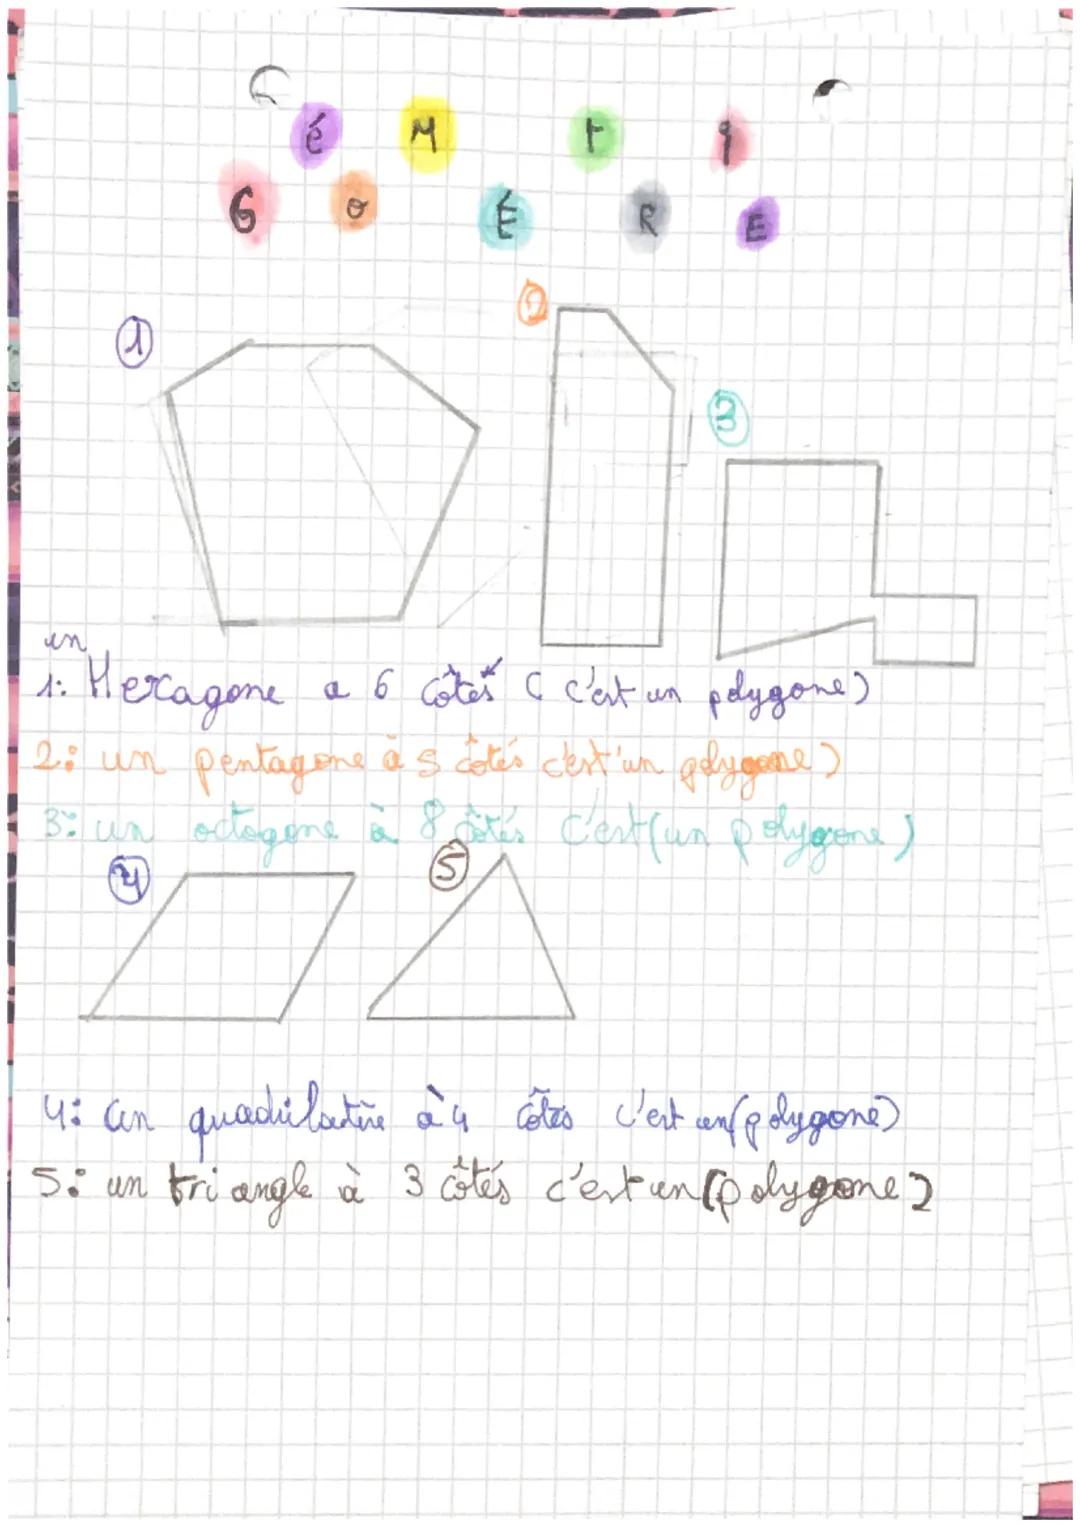 GéoMÉtRiE
1
2
3
un
1: Hexagone a 6 côtés ( c'est un polygone)
2: un pentagone à 5 côtés c'est'un polygone)
3: un octogone à 8 côtés C'est(un polygone)
4
5
4: un quadrilatère à 4 côtés c'est un(polygone)
5: un triangle à 3 côtés c'est un(polygone)